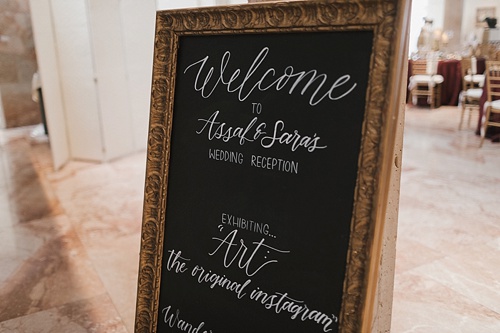 Welcome
TO
Assaf & Sara's
WEDDING RECEPTION
EXHIBITING...
"Art:
the original instagram"